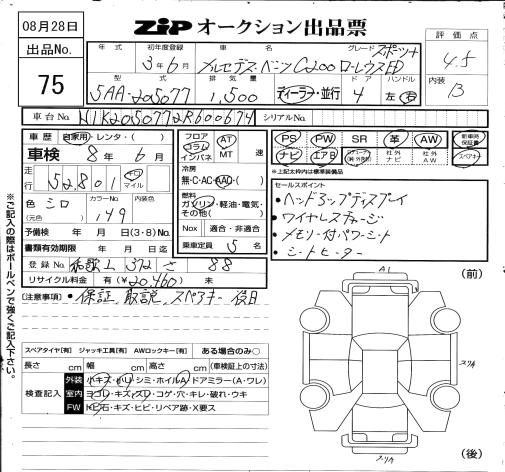 08月28日
ZIP オークション出品票
出品No.
75
年式 初年度登録 車名 グレード
3年6月 メルセデスベンツ C200 ローレウスED スポーツ+
評価点
4.5
型式 排気量 ドア ハンドル
5AA-205077 1,500 ディーラー・並行 4 左・右
内装
B
車台No. W1K2050772R600674 シリアルNo.
車歴 自家用・レンタ・( )
車検 8年 6月
走行 52,801 キロ マイル
色 シロ カラーNo. 149 内装色
(元色)
予備検 年 月 日(3・8)No.
書類有効期限 年 月 日迄
登録No. 和歌山 372 さ 88
リサイクル料金 有(¥20,460) 未
フロア コラム インパネ AT MT 速
冷房
無・C・AC・AAC・( )
燃料
ガソリン・軽油・電気・その他( )
Nox 適合・非適合
乗車定員 5 名
PS PW SR 革 AW 新車時保証書
ナビ エアB 社外ナビ 社外AW スペアキー
*上記太枠内は標準装備品
セールスポイント
・ヘッドアップディスプレイ
・ワイヤレスチャージ
・メモリー付パワーシート
・シートヒーター
(注意事項) ・保証、取説、スペアキー 後日
※ご記入の際はボールペンで強くご記入下さい。
スペアタイヤ[有] ジャッキ工具[有] AWロックキー[有] ある場合のみ○
長さ cm 幅 cm 高さ cm (車検証上の寸法)
検査記入
外装 小キズ・小凹・シミ・ホイルA・ドアミラー(A・ワレ)
室内 ヨゴレ・キズ・スレ・コゲ・穴・キレ・破れ・ウキ
FW トビ石・キズ・ヒビ・リペア跡・X要ス
A1
(前)
スリA
スリA
(後)